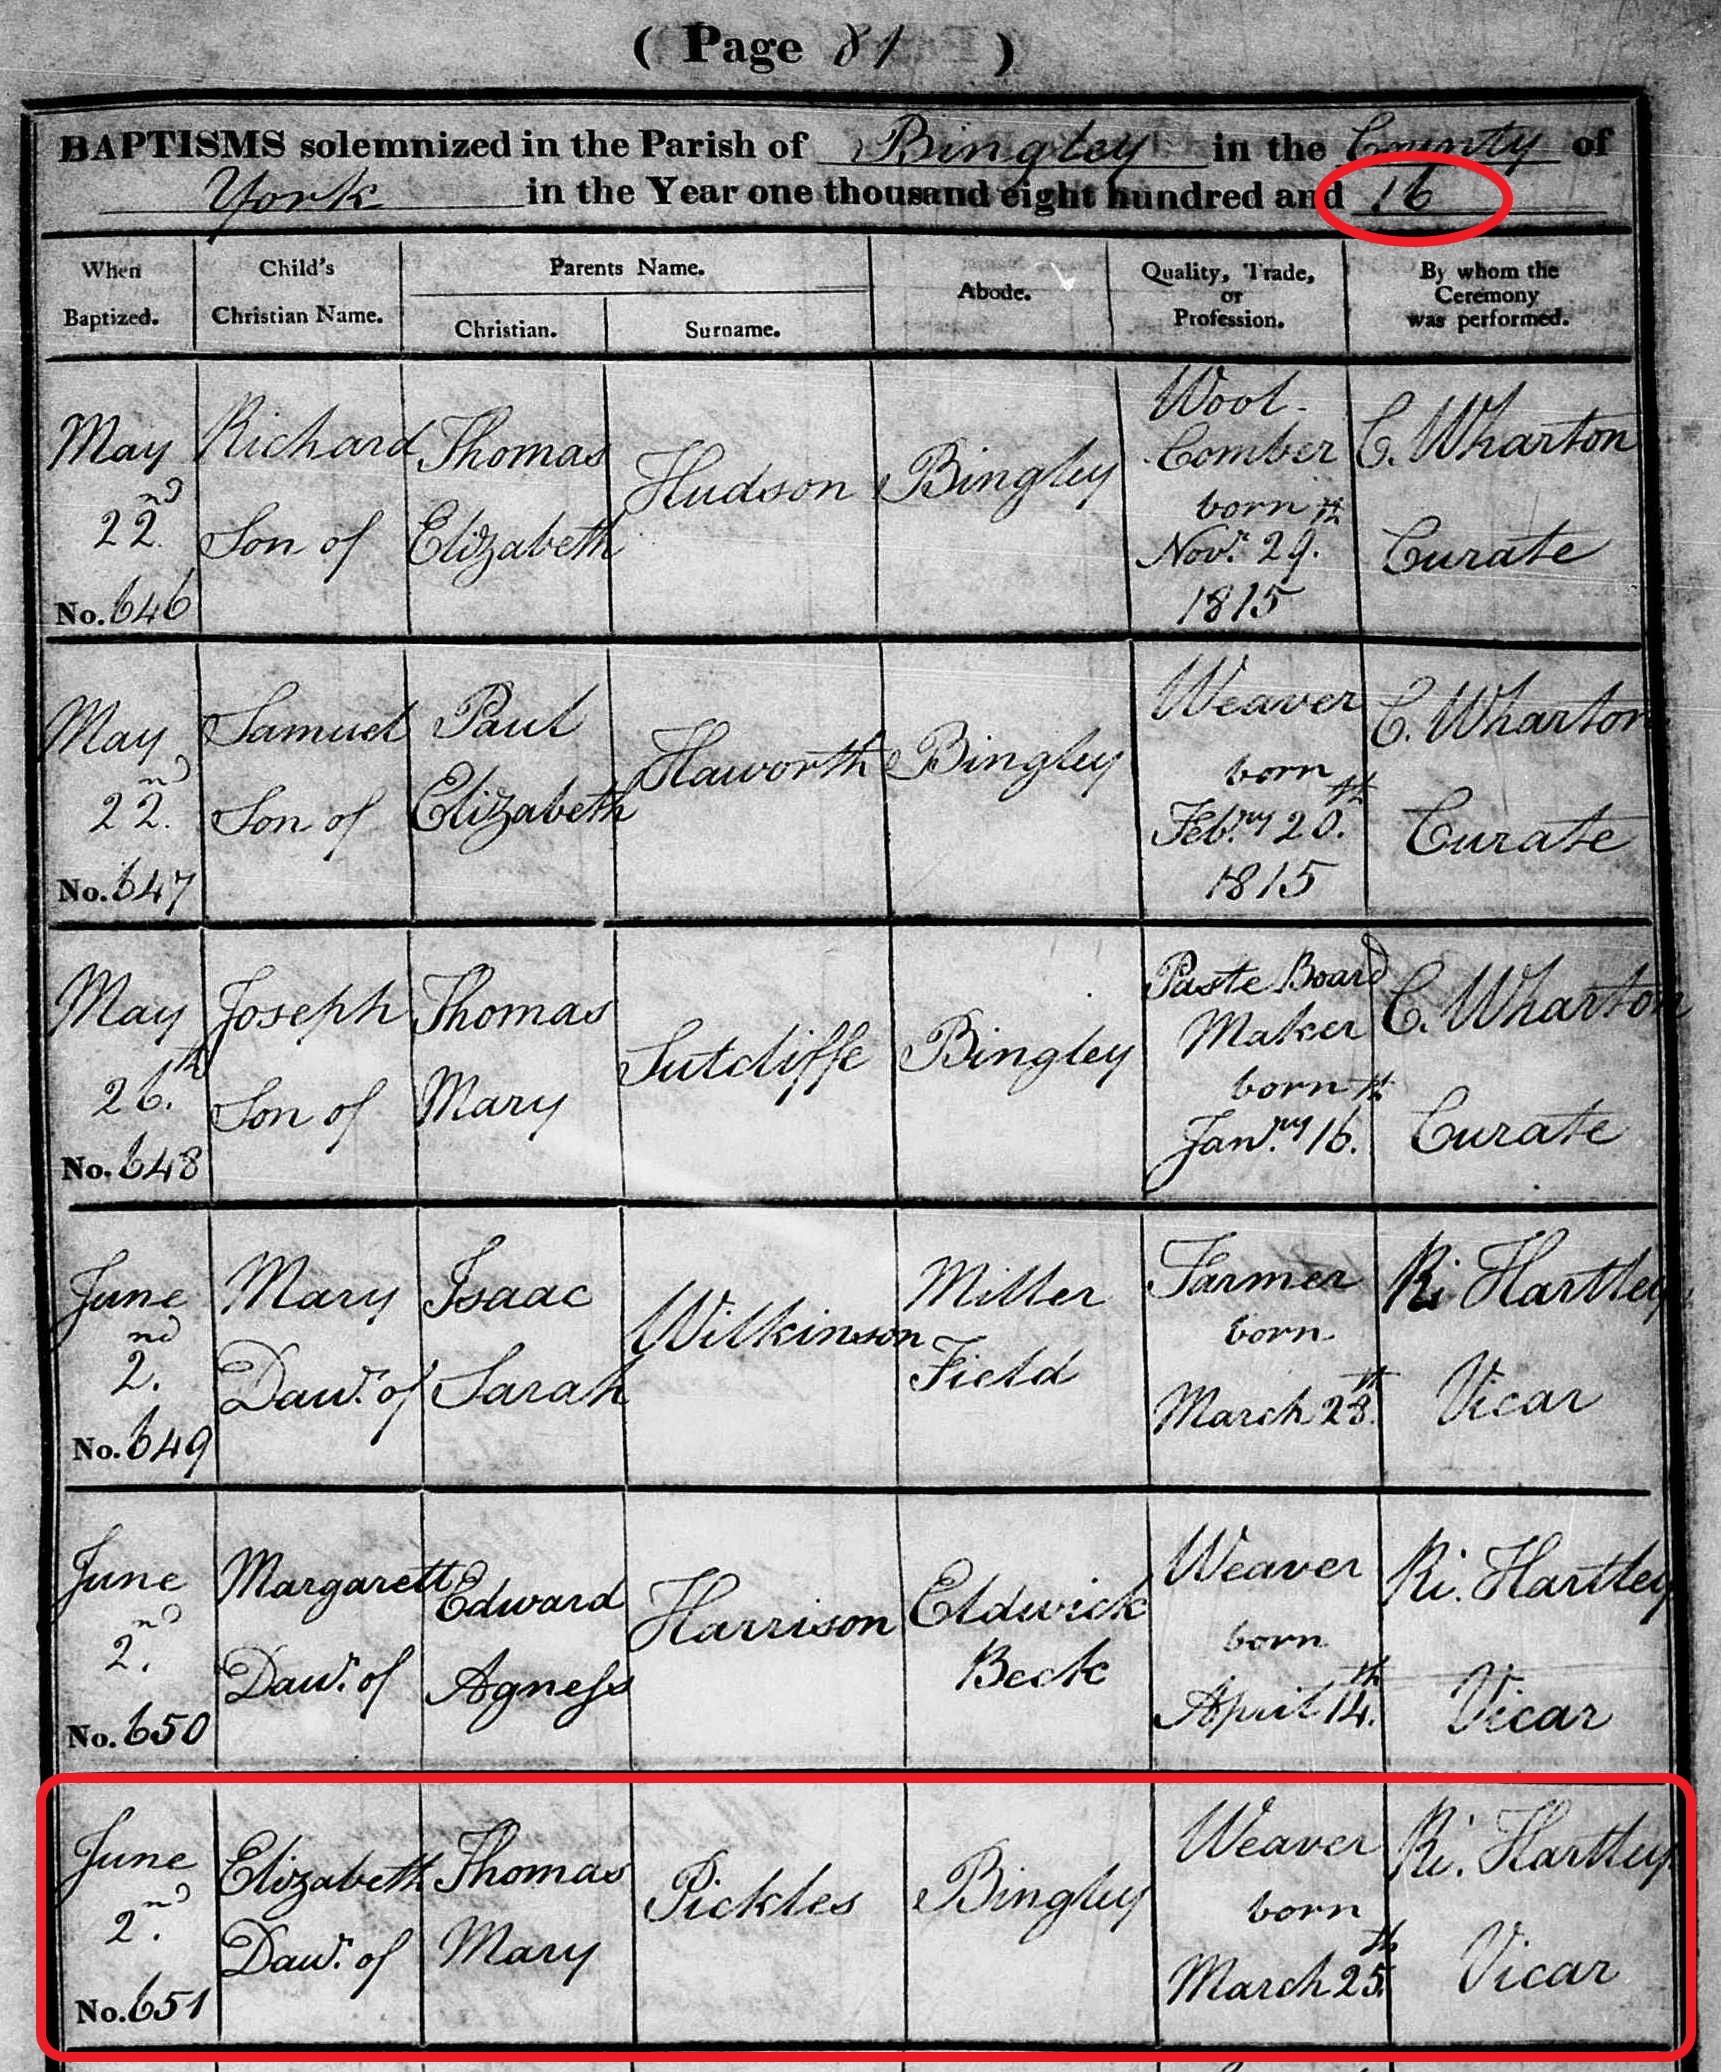 ( Page 81 )
BAPTISMS solemnized in the Parish of Bingley in the County of
York in the Year one thousand eight hundred and 16
When Baptized.
Child's Christian Name.
Parents Name.
Christian.
Surname.
Abode.
Quality, Trade, or Profession.
By whom the Ceremony was performed.
May 22nd No. 646
Richard Son of
Thomas Elizabeth
Hudson
Bingley
Wool-Comber born Novr. 29th. 1815
C. Wharton Curate
May 22nd. No. 647
Samuel Son of
Paul Elizabeth
Haworth
Bingley
Weaver born Febry 20th. 1815
C. Wharton Curate
May 26th. No. 648
Joseph Son of
Thomas Mary
Sutcliffe
Bingley
Paste Board Maker born Janry 16th.
C. Wharton Curate
June 2nd. No. 649
Mary Dawr. of
Isaac Sarah
Wilkinson
Miller Field
Farmer born March 28th.
Ri Hartley Vicar
June 2nd. No. 650
Margarett Dawr. of
Edward Agness
Harrison
Eldwick Beck
Weaver born April 14th.
Ri. Hartley Vicar
June 2nd. No. 651
Elizabeth Dawr. of
Thomas Mary
Pickles
Bingley
Weaver born March 25th.
Ri. Hartley Vicar